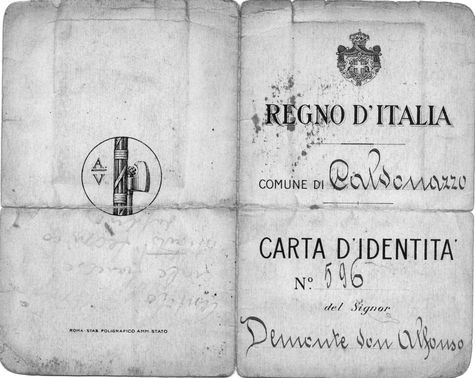 A.
V.
ROMA-STAB. POLIGRAFICO AMM. STATO
REGNO D'ITALIA
COMUNE DI Caldonazzo
CARTA D'IDENTITA'
No. 596
del Signor
Demonte don Alfonso